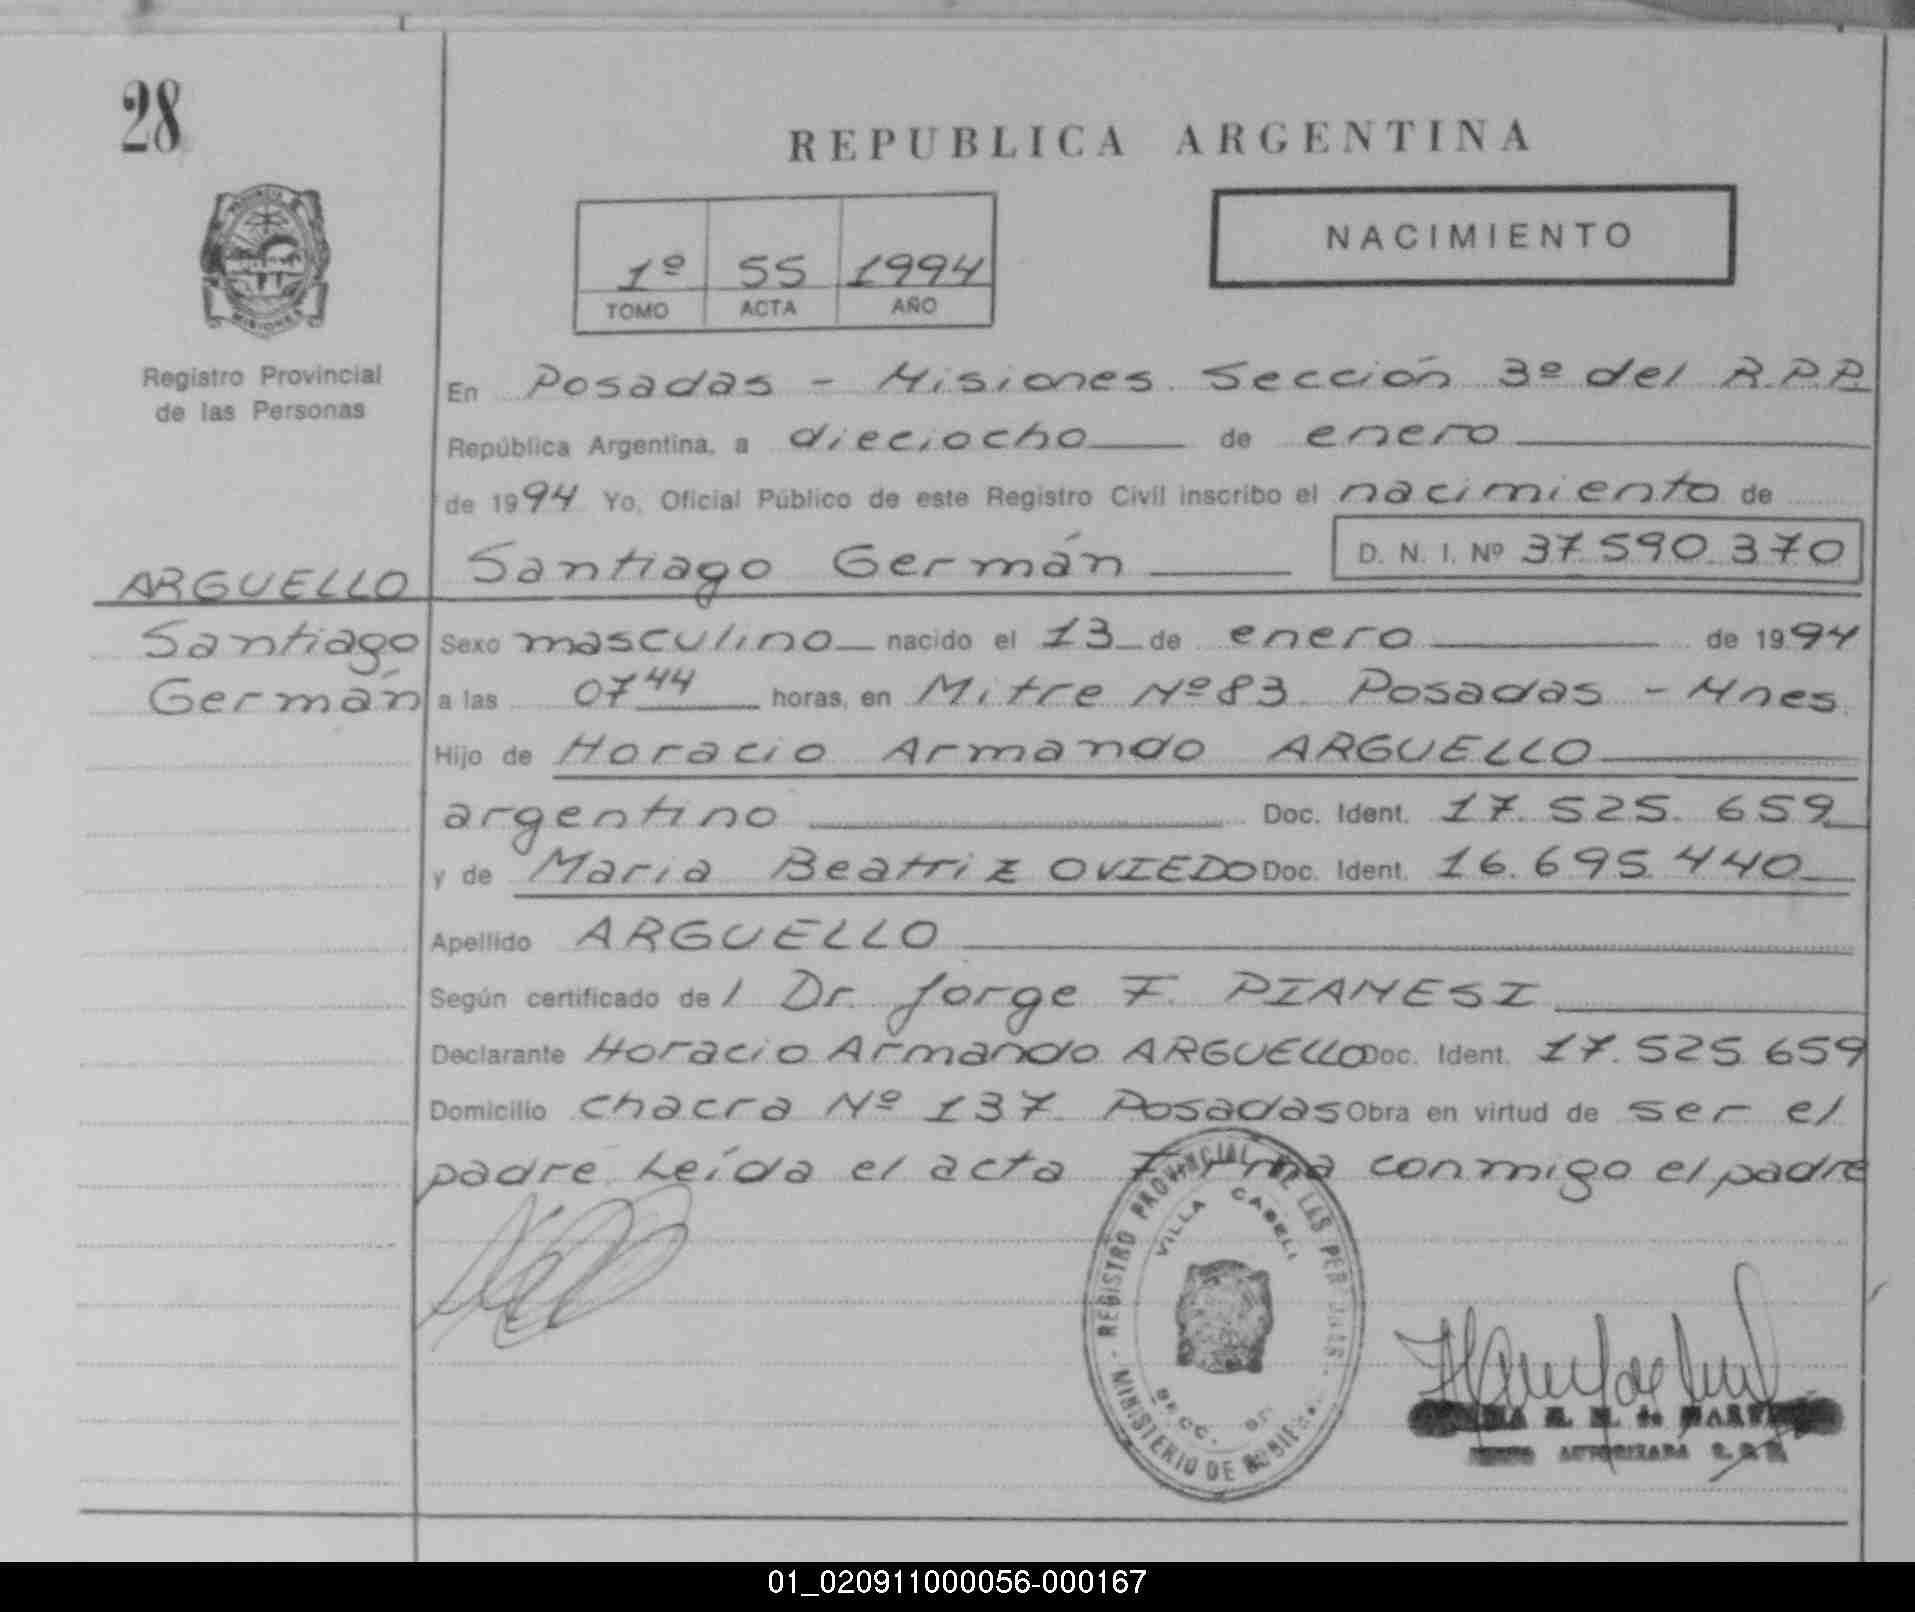 28
REPUBLICA ARGENTINA
NACIMIENTO
1º 55 1994
TOMO ACTA AÑO
PROVINCIA DE
MISIONES
Registro Provincial
de las Personas
En Posadas - Misiones. Sección 3º del R.P.P.
República Argentina, a dieciocho de enero
de 1994 Yo, Oficial Público de este Registro Civil inscribo el nacimiento de
ARGUELLO Santiago Germán D. N. I. Nº 37.590.370
Santiago Sexo masculino nacido el 13 de enero de 1994
Germán a las 07 44 horas, en Mitre Nº 83. Posadas - Mnes.
Hijo de Horacio Armando ARGUELLO
argentino Doc. Ident. 17.525.659
y de Maria Beatriz OVIEDO Doc. Ident. 16.695.440
Apellido ARGUELLO
Según certificado de l Dr. Jorge F. PIANESI
Declarante Horacio Armando ARGUELLO Doc. Ident. 17.525.659
Domicilio chacra Nº 137. Posadas Obra en virtud de ser el
padre. Leída el acta Firma conmigo el padre
REGISTRO PROVINCIAL DE LAS PERSONAS
VILLA CABELI
SECC.
MINISTERIO DE GOBIERNO
M. de
AUTORIZADA
01_020911000056-000167